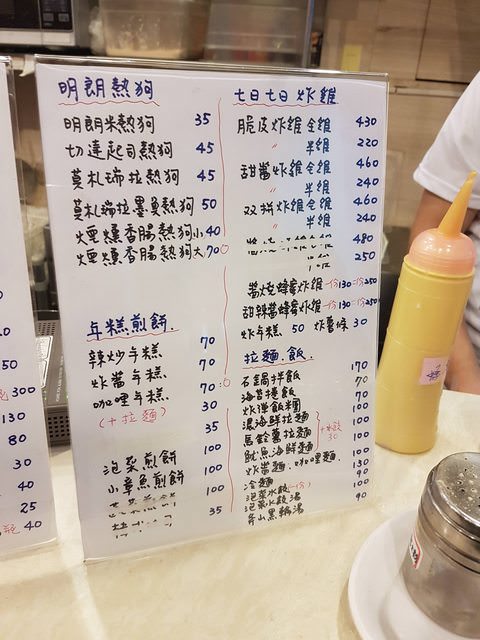 明朗熱狗
明朗米熱狗 35
切達起司熱狗 45
莫札瑞拉熱狗 45
莫札瑞拉墨曼熱狗 50
煙燻香腸熱狗小 40
煙燻香腸熱狗大 70
年糕煎餅
辣炒年糕 70
炸醬年糕 70
咖哩年糕 70
(+拉麵) 30
35
泡菜煎餅 100
小章魚煎餅 100
100
35
七日七日炸雞
脆皮炸雞全雞 430
〃 半雞 220
甜醬炸雞全雞 460
〃 半雞 240
双拼炸雞全雞 460
〃 半雞 240
480
250
醬燒蜂蜜炸雞 一份130 二份250
甜辣醬蜂蜜炸雞 一份130 二份250
炸年糕 50 炸薯條 30
拉麵.飯.
石鍋拌飯 170
海苔捲飯 70
炸彈飯糰 70
濃海鮮拉麵 100
馬鈴薯拉麵 100
魷魚海鮮麵 100
炸醬麵.咖哩麵 100
冷麵 130
泡菜水餃(一份) 90
泡菜水餃湯 100
釜山黑輪湯 90
50
300
130
80
30
40
25
40